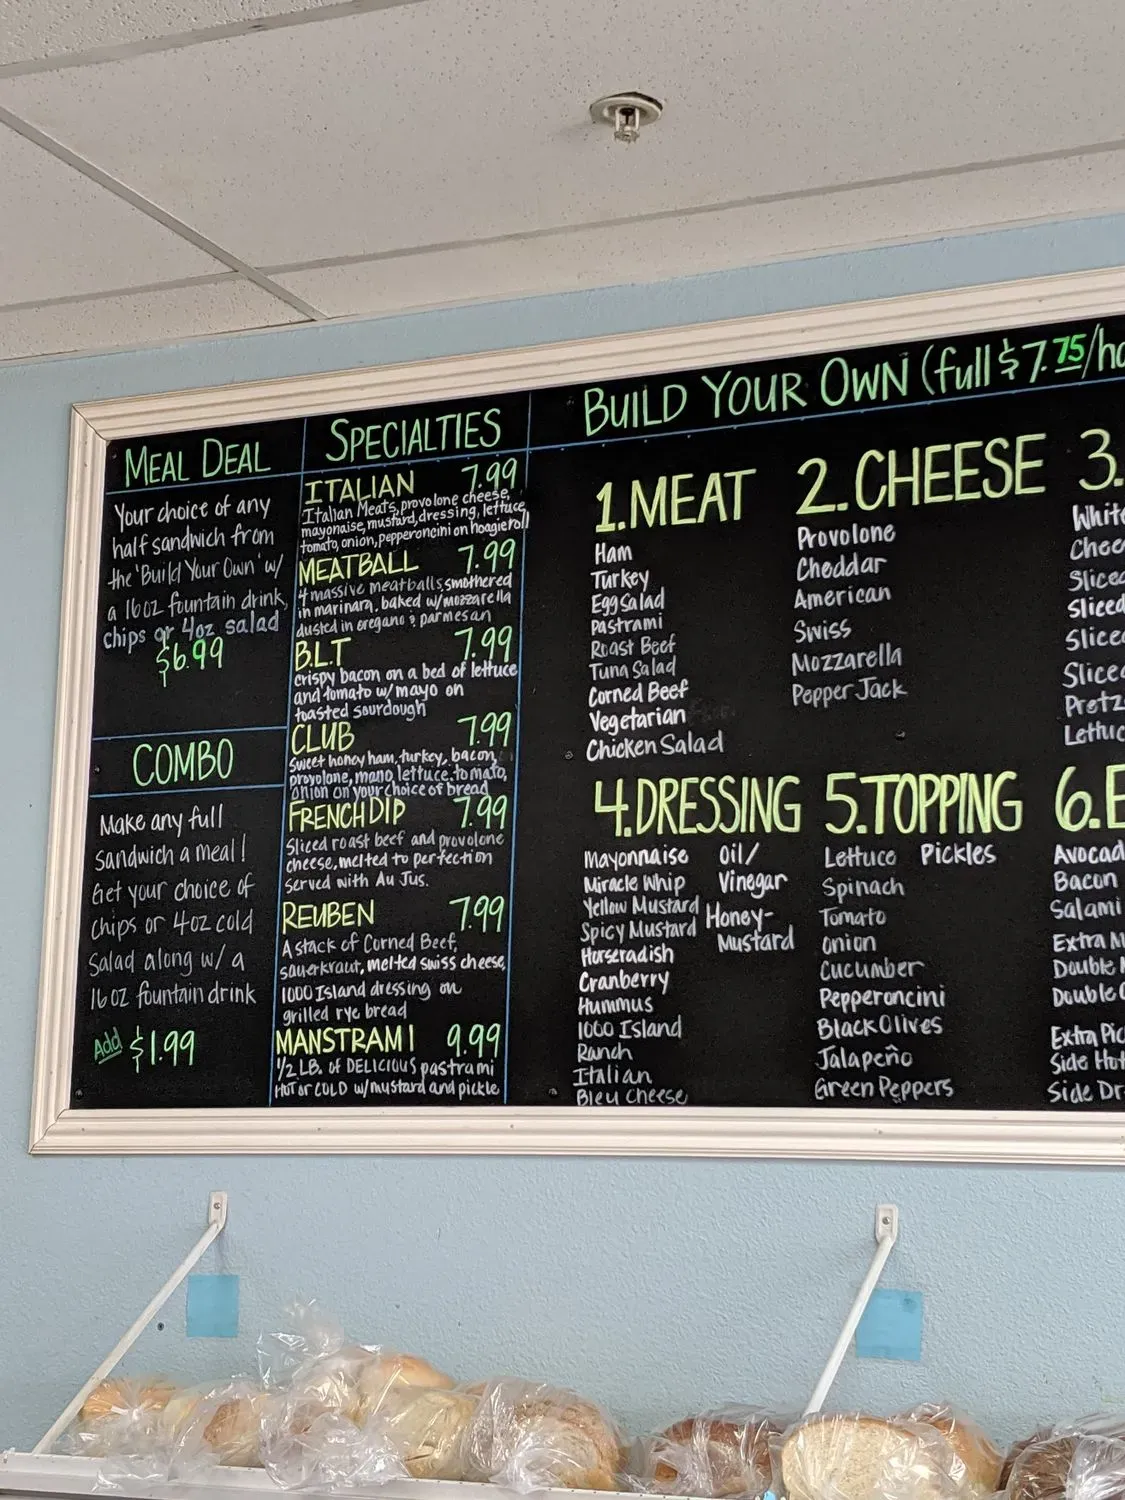 MEAL DEAL
Your choice of any
half sandwich from
the 'Build Your Own' w/
a 16oz fountain drink,
chips or 4oz salad
$6.99
COMBO
Make any full
Sandwich a meal!
Get your choice of
chips or 4oz cold
Salad along w/ a
16oz fountain drink
Add $1.99
SPECIALTIES
ITALIAN 7.99
Italian Meats, provolone cheese,
mayonaise, mustard, dressing, lettuce,
tomato, onion, pepperoncini on hoagie roll
MEATBALL 7.99
4 massive meatballs, smothered
in marinara, baked w/mozzarella
dusted in oregano & parmesan
B.L.T 7.99
crispy bacon on a bed of lettuce
and tomato w/ mayo on
toasted sourdough
CLUB 7.99
sweet honey ham, turkey, bacon,
provolone, mano, lettuce, tomato,
onion on your choice of bread
FRENCH DIP 7.99
Sliced roast beef and provolone
cheese, melted to perfection
served with Au Jus.
REUBEN 7.99
A stack of Corned Beef,
sauerkraut, melted swiss cheese,
1000 Island dressing on
grilled rye bread
MANSTRAMI 9.99
1/2 LB. of DELICIOUS pastrami
HOT or COLD w/mustard and pickle
BUILD YOUR OWN (full $7.75/ha
1. MEAT
Ham
Turkey
Egg Salad
Pastrami
Roast Beef
Tuna Salad
Corned Beef
Vegetarian
Chicken Salad
2. CHEESE
Provolone
Cheddar
American
Swiss
Mozzarella
Pepper Jack
3.
White
Chee
Sliced
Sliced
Slice
Slice
Pretz
Lettuc
4. DRESSING
Mayonnaise
Miracle Whip
Yellow Mustard
Spicy Mustard
Horseradish
Cranberry
Hummus
1000 Island
Ranch
Italian
Bleu Cheese
Oil/
Vinegar
Honey-
Mustard
5. TOPPING
Lettuce
Spinach
Tomato
Onion
Cucumber
Pepperoncini
Black Olives
Jalapeño
Green Peppers
Pickles
6. E
Avocad
Bacon
Salami
Extra M
Double M
Double C
Extra Pic
Side Hot
Side Dr